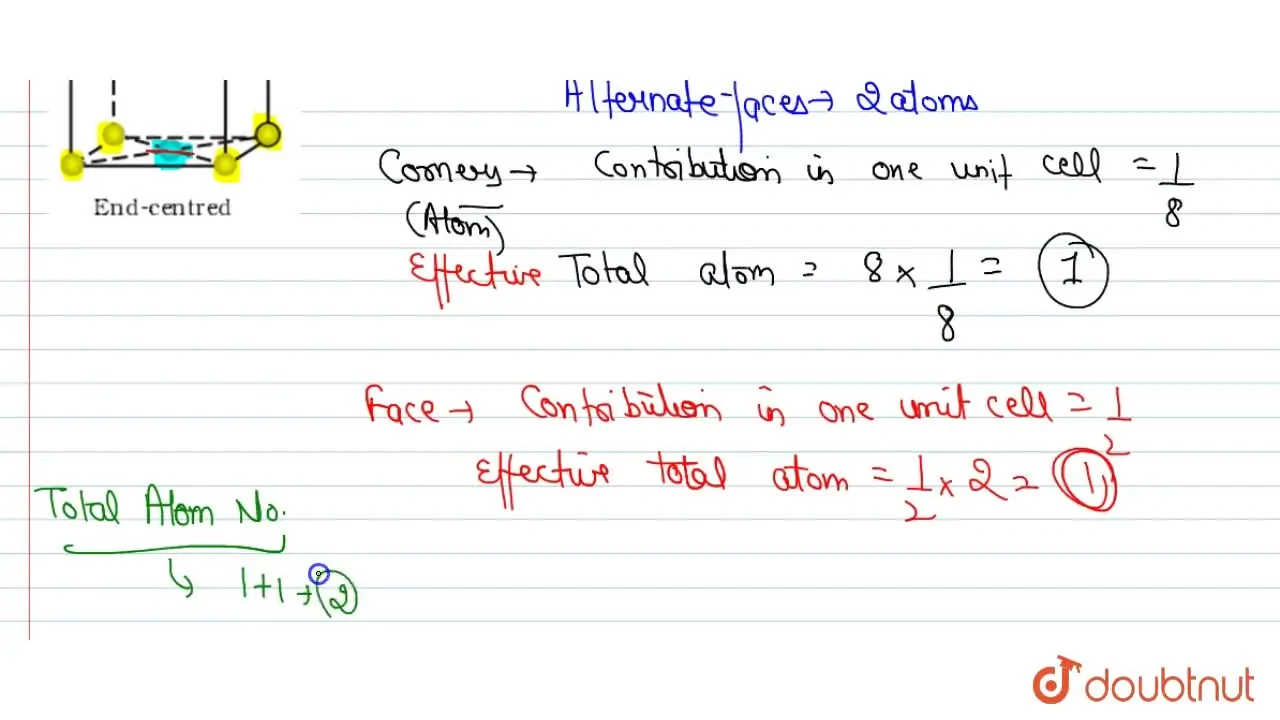 Alternate faces → 2 atoms
Corners → Contribution in one unit cell = 1/8
(Atom)
Effective Total atom = 8 × 1/8 = 1
End-centred
Face → Contribution in one unit cell = 1/2
Effective total atom = 1/2 × 2 = 1
Total Atom No.
↳ 1+1 → 2
doubtnut